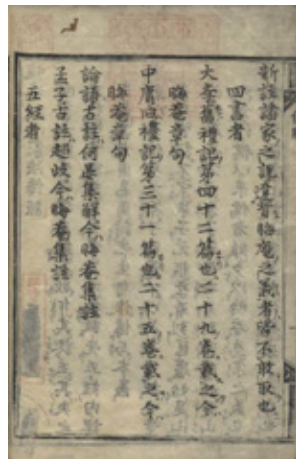 新註諸家之説違晦菴之義者皆不敢取也
四書者
大孝舊禮記第四十二篇也二十九卷載之今
晦菴章句
中庸四禮記第三十一篇也二十五卷載之今
晦菴章句
論語古註何晏集解今晦菴集註
孟子古註趙岐今晦菴集註
五經者